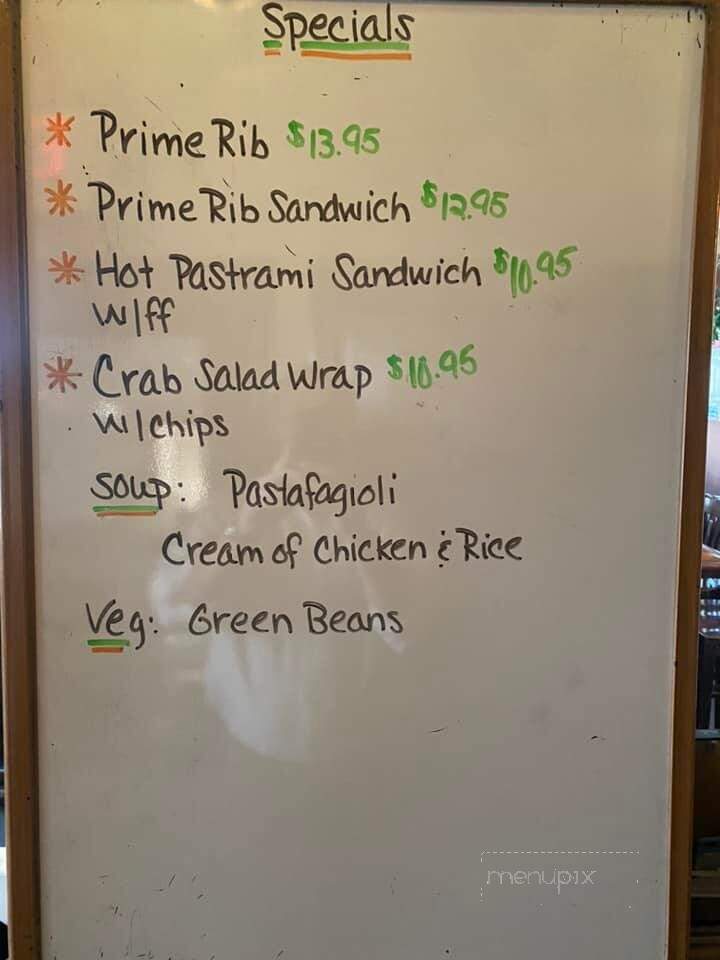 Specials
* Prime Rib $13.95
* Prime Rib Sandwich $12.95
* Hot Pastrami Sandwich $10.95
W/ff
* Crab Salad Wrap $10.95
W/chips
Soup: Pastafagioli
Cream of Chicken & Rice
Veg: Green Beans
menupix